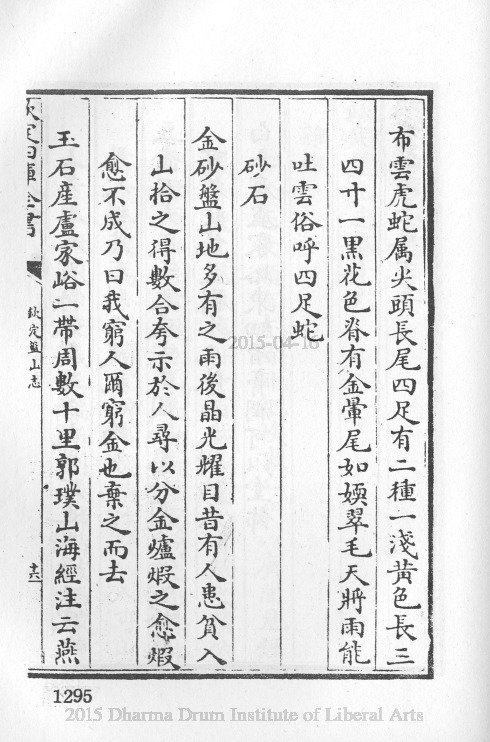 布雲虎蛇属尖頭長尾四足有二種一淺黃色長三
四寸一黒花色脊有金暈尾如嫩翠毛天將雨能
吐雲俗呼四足蛇
砂石
金砂盤山地多有之雨後晶光耀目昔有人患貧入
山拾之得數合夸示於人尋以分金爐煅之愈煅
愈不成乃曰我窮人爾窮金也棄之而去
玉石産盧家峪一帶周數十里郭璞山海經注云燕
欽定四庫全書
欽定盤山志
十六
2015-04-16
1295
2015 Dharma Drum Institute of Liberal Arts